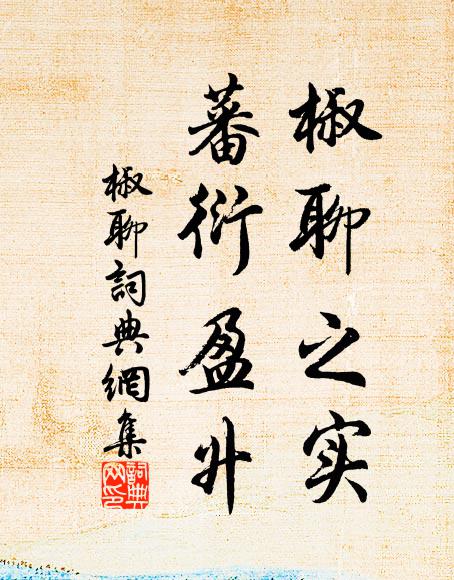 椒聊之实
蕃衍盈升
椒聊詞典網集
詞典網印